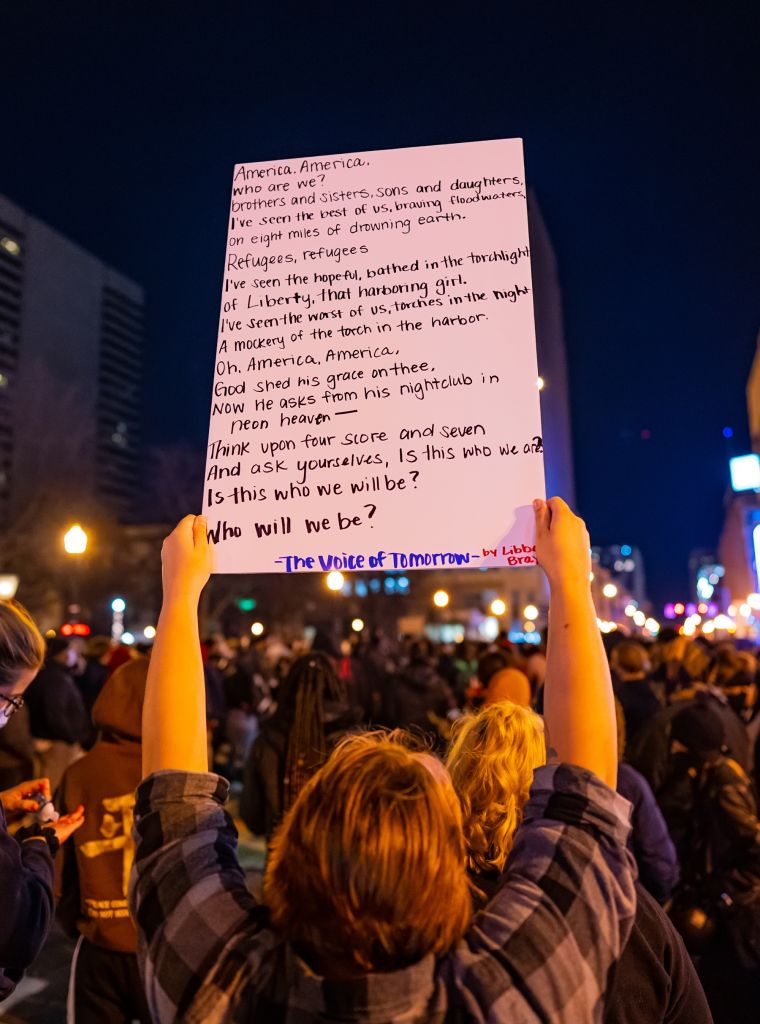 America, America,
who are we?
brothers and sisters, sons and daughters,
I've seen the best of us, braving floodwaters,
on eight miles of drowning earth.
Refugees, refugees
I've seen the hopeful, bathed in the torchlight
of Liberty, that harboring girl.
I've seen the worst of us, torches in the night
A mockery of the torch in the harbor.
Oh, America, America,
God shed his grace on thee,
Now He asks from his nightclub in
neon heaven —
Think upon four score and seven
And ask yourselves, Is this who we are?
Is this who we will be?
Who will we be?
-The Voice of Tomorrow- by Libba
Bray